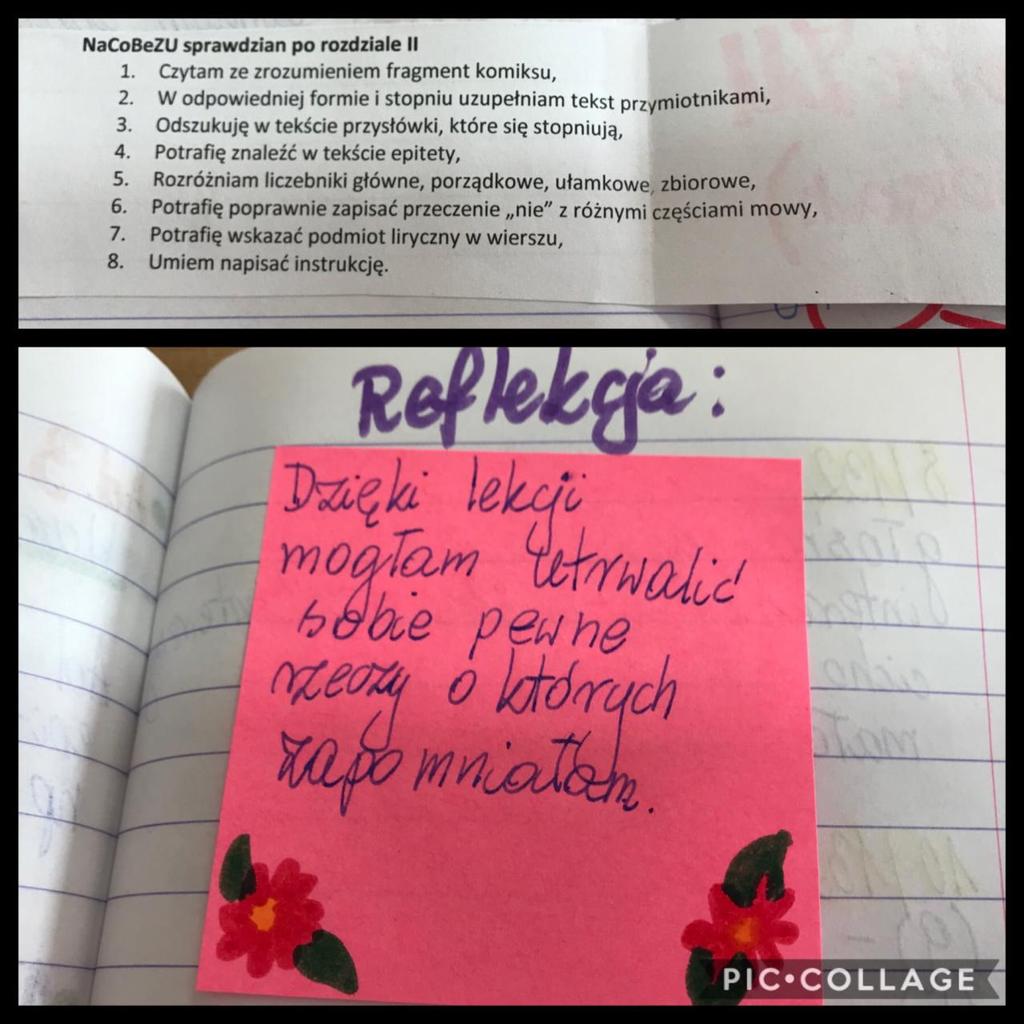 NaCoBeZU sprawdzian po rozdziale II
1. Czytam ze zrozumieniem fragment komiksu,
2. W odpowiedniej formie i stopniu uzupełniam tekst przymiotnikami,
3. Odszukuję w tekście przysłówki, które się stopniują,
4. Potrafię znaleźć w tekście epitety,
5. Rozróżniam liczebniki główne, porządkowe, ułamkowe, zbiorowe,
6. Potrafię poprawnie zapisać przeczenie „nie” z różnymi częściami mowy,
7. Potrafię wskazać podmiot liryczny w wierszu,
8. Umiem napisać instrukcję.
Reflekcja:
Dzięki lekcji
mogłam utrwalić
sobie pewne
rzeczy o których
zapomniałam.
PIC•COLLAGE